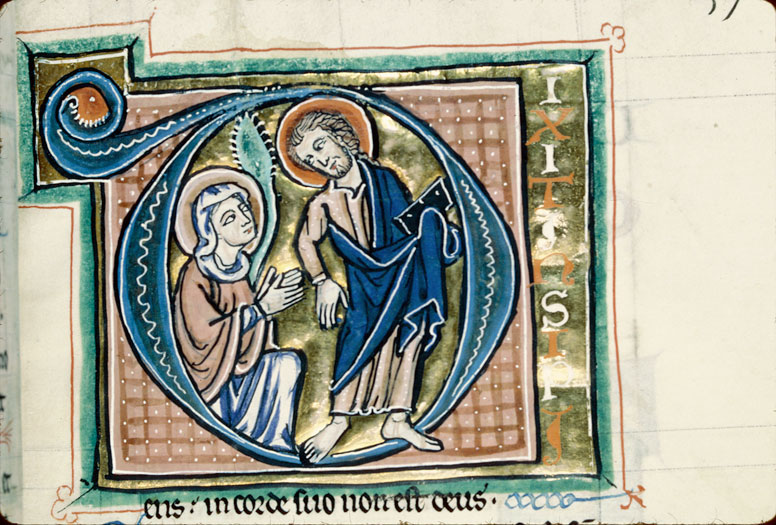 DIXITInSIPI
ens: in corde suo non est deus.